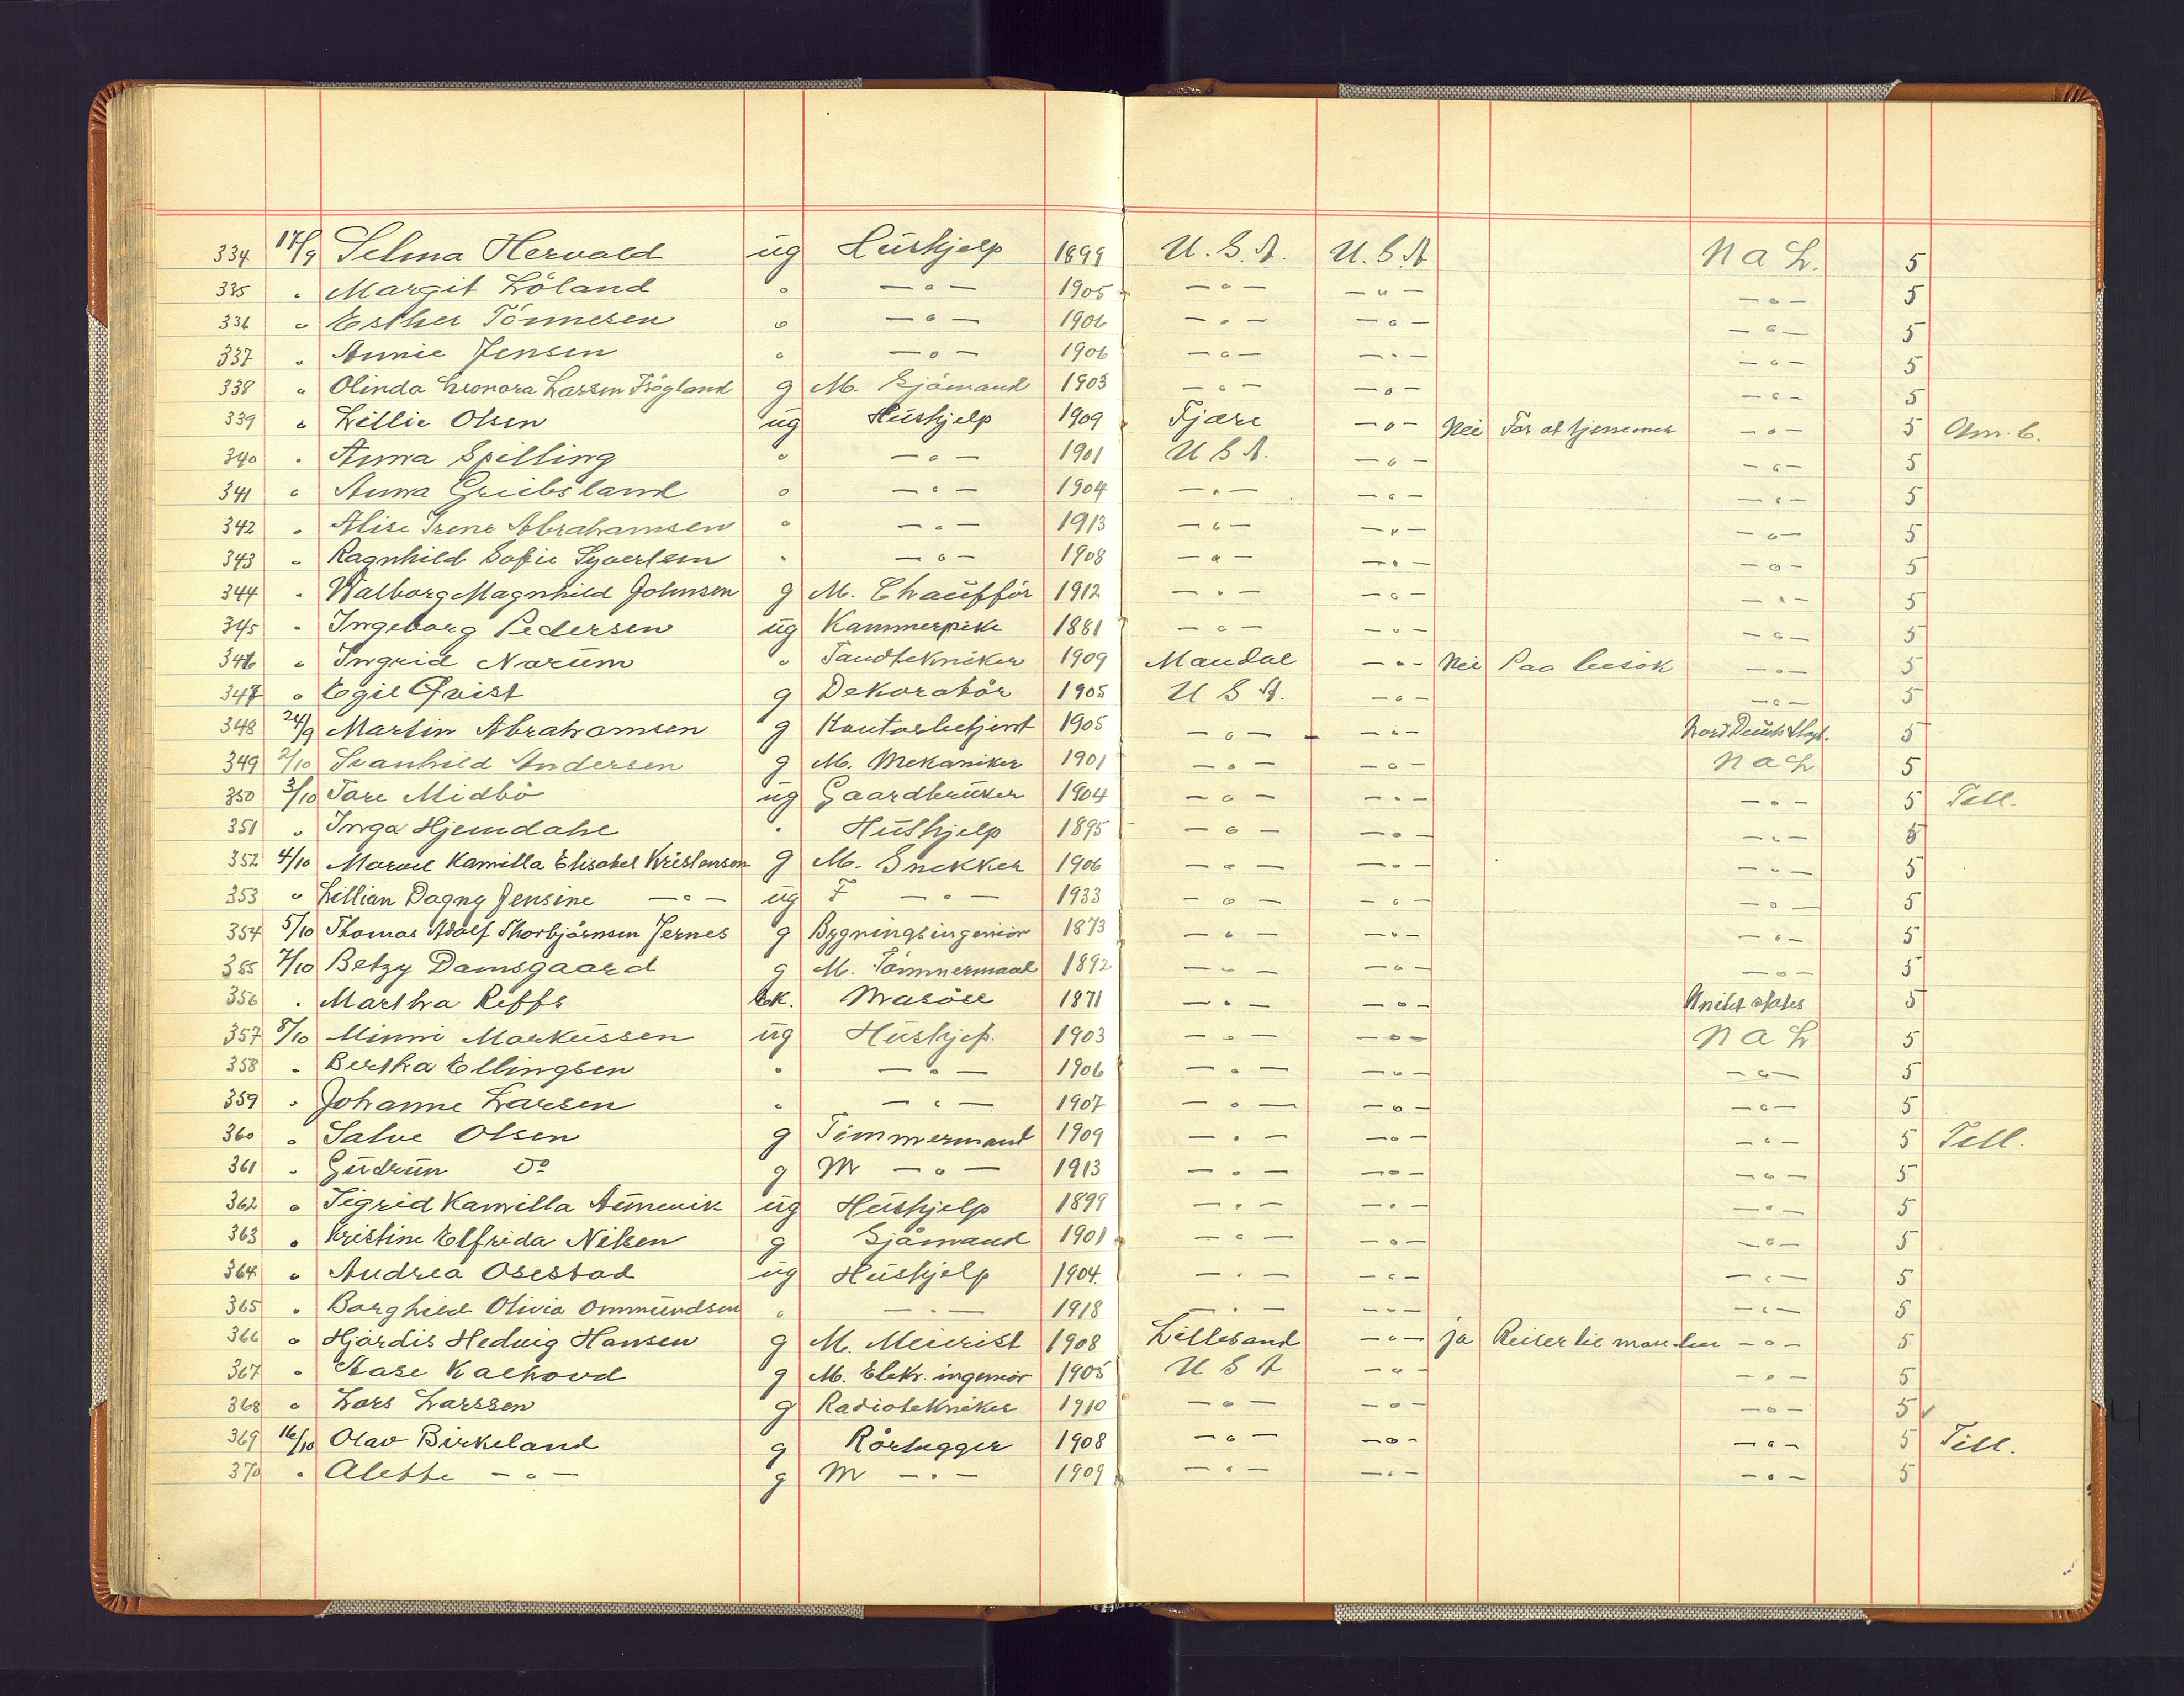 334 17/9 Selma Hervold ug Hushjelp 1899 U.S.A. U.S.A N a L. 5
335 " Margit Löland " — " — 1905 — " — — " — — " — 5
336 " Esther Tönnesen " — " — 1906 — " — — " — — " — 5
337 " Annie Jensen " — " — 1906 — " — — " — — " — 5
338 " Olinda Leonora Larsen Frögland g M. Sjömand 1903 — " — — " — — " — 5
339 " Lillie Olsen ug Hushjelp 1909 Fjære — " — Nei For at tjene mer — " — 5
340 " Anna Spilling " — " — 1901 U S A. — " — — " — 5
341 " Anna Greibsland " — " — 1904 — " — — " — — " — 5
342 " Alise Irene Abrahamsen " — " — 1913 — " — — " — — " — 5
343 " Ragnhild Sofie Syvertsen " — " — 1908 — " — — " — — " — 5
344 " Walborg Magnhild Johnsen g M. Chaufför 1912 — " — — " — — " — 5
345 " Ingeborg Pedersen ug Kammerpike 1881 — " — — " — — " — 5
346 " Ingrid Norum " Tandtekniker 1909 Mandal — " — Nei Paa besök — " — 5
347 " Egil Qvist g Dekoratör 1905 U S A. — " — — " — 5
348 24/9 Martin Abrahamsen g Kontorbetjent 1905 — " — — " — 5
349 2/10 Svanhild Andersen g M. Mekaniker 1901 — " — — " — N a L 5
350 3/10 Tore Midbö ug Gaardbruker 1904 — " — — " — — " — 5 Till.
351 " Inga Hjemdahl " Hushjelp 1895 — " — — " — — " — 5
352 4/10 Kamilla Elisabet Kristensen g M. Snekker 1906 — " — — " — — " — 5
353 " Lillian Dagny Jensine — " — ug F — " — 1933 — " — — " — — " — 5
354 5/10 Thomas Adolf Thorbjörnsen Jernes g Bygningsingeniör 1873 — " — — " — — " — 5
355 7/10 Betzy Damsgaard g M. Tömmermand 1892 — " — — " — — " — 5
356 " Martha Reffs Ek. Masöse 1871 — " — — " — Unitet states 5
357 8/10 Minni Markussen ug Hushjep. 1903 — " — — " — N a L 5
358 " Bertha Ellingsen " — " — 1906 — " — — " — — " — 5
359 " Johanne Larsen " — " — 1907 — " — — " — — " — 5
360 " Salve Olsen g Timmermand 1909 — " — — " — — " — 5 Till.
361 " Gudrun Do g M — " — 1913 — " — — " — — " — 5
362 " Sigrid Kamilla Aunevik ug Hushjelp 1899 — " — — " — — " — 5
363 " Kristine Elfrida Nilsen g Sjömand 1901 — " — — " — — " — 5
364 " Andrea Osestad ug Hushjelp 1904. — " — — " — — " — 5
365 " Borghild Olivia Ommundsen " — " — 1918 — " — — " — — " — 5
366 " Hjördis Hedvig Hansen g M. Meierist 1908 Lillesand — " — ja Reiser til manden — " — 5
367 " Aase Kalhovd g M. Elekr. ingeniör 1905 U S A — " — — " — 5
368 " Lars Larssen g Radiotekniker 1910 — " — — " — — " — 5 ✓
369 16/10 Olav Birkeland g Rörlegger 1908 — " — — " — — " — 5 Till.
370 " Alette — " — g M — " — 1909 — " — — " — — " — 5